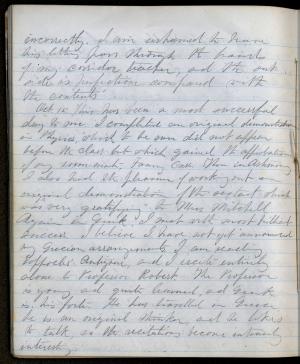 incorrectly. I am ashamed to have
this letter pass through the hands
of my corridor teacher, and the out
side is perfection compared with
the contents.
has been a most successful
day to me. I completed an original demonstration
in Physics, which to be sure did not appear
before the class but which gained the approbation
of my room mate, Fanny
I also had the pleasure of work out an
original demonstration
was very gratifying to Miss Mitchell
Again in Greek, I met with
success. I believe I have not yet announced
my Grecian arrangements. I am reading
Sophocles' Antigone, and I recite entirely
alone to Professor Robert. The Professor
is young and quite learned, and Greek
is his forte. He has travelled in Greece,
he is an original thinker and he likes
to talk, so the recitations become intensely
interesting.